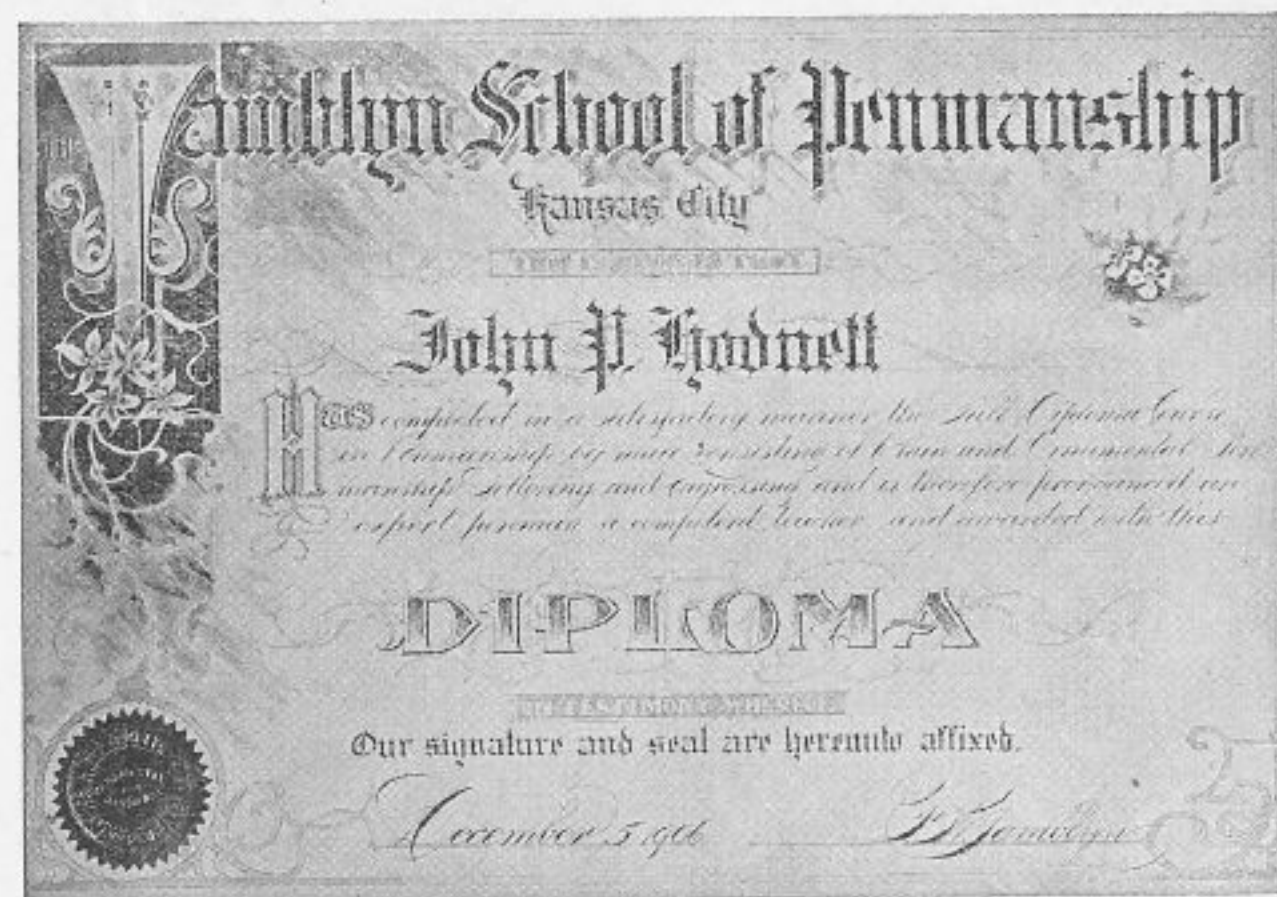 THE
Tamblyn School of Penmanship
Kansas City
THIS CERTIFIES THAT
John P. Hodnett
Has completed in a satisfactory manner the Full Diploma Course
in Penmanship by mail consisting of Plain and Ornamental Pen
manship Lettering and Engrossing and is therefore pronounced an
expert penman a competent teacher and awarded with this
DIPLOMA
IN TESTIMONY WHEREOF
Our signature and seal are hereunto affixed.
December 5 1906 F. W. Tamblyn